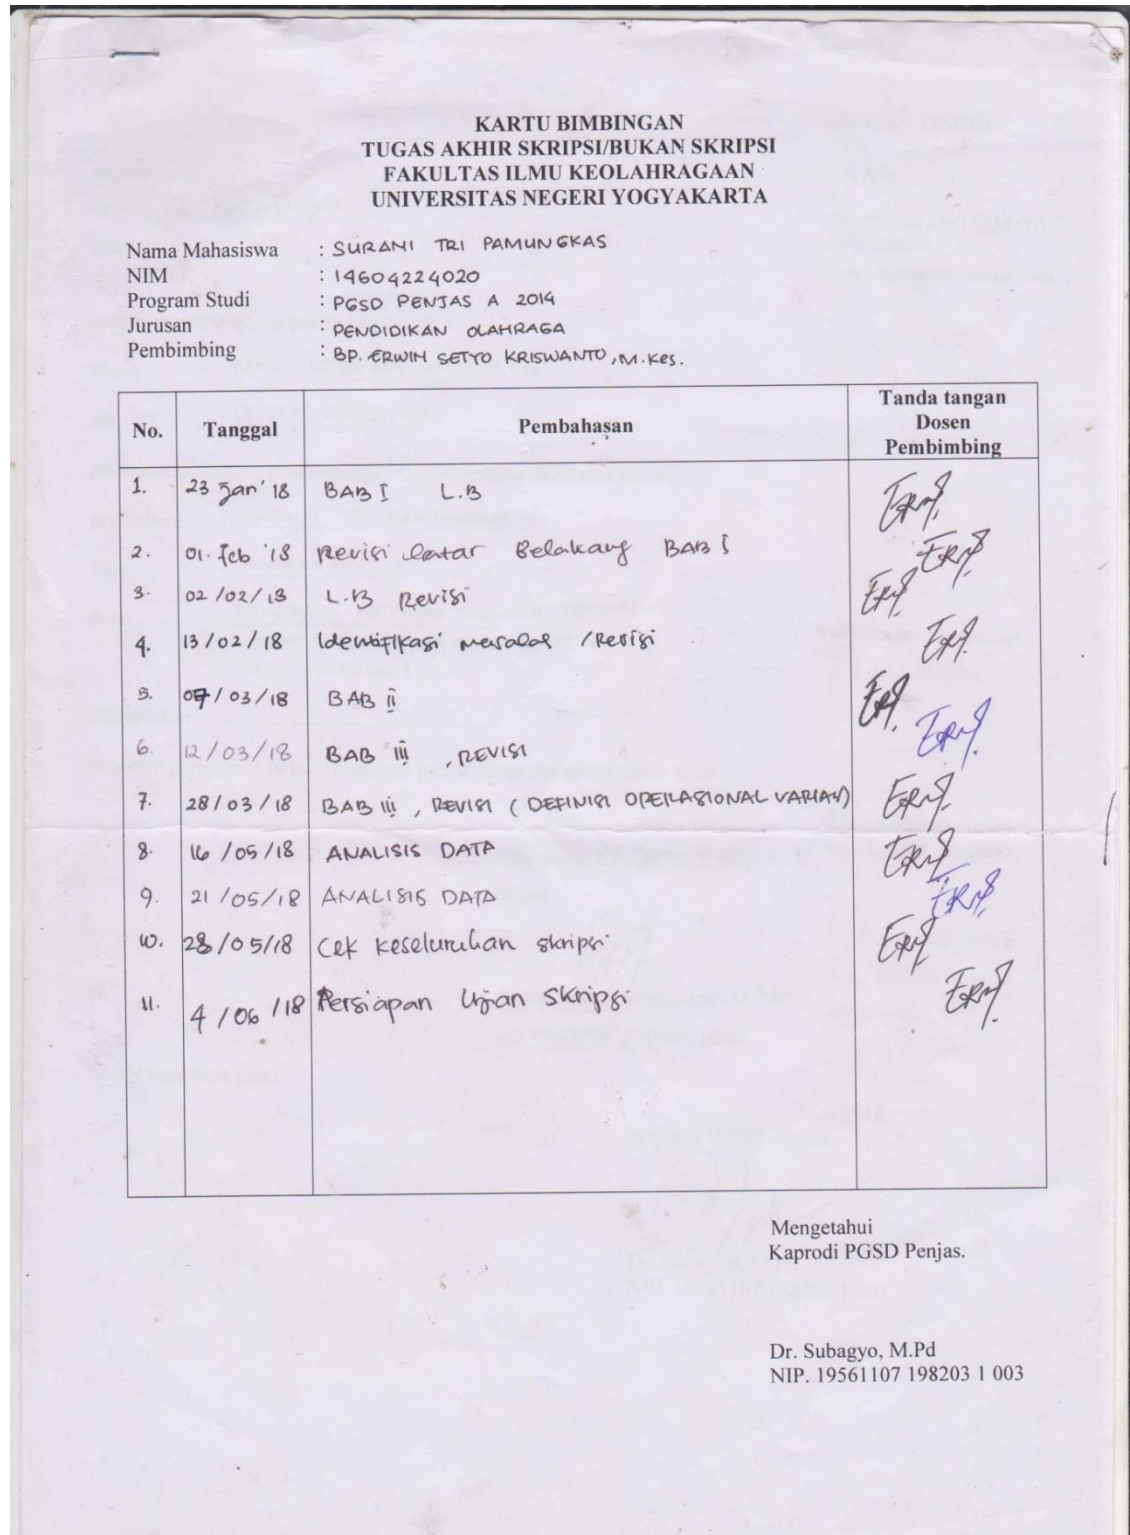 KARTU BIMBINGAN
TUGAS AKHIR SKRIPSI/BUKAN SKRIPSI
FAKULTAS ILMU KEOLAHRAGAAN
UNIVERSITAS NEGERI YOGYAKARTA
Nama Mahasiswa : SURANI TRI PAMUNGKAS
NIM : 14604224020
Program Studi : PGSD PENJAS A 2014
Jurusan : PENDIDIKAN OLAHRAGA
Pembimbing : BP. ERWIN SETYO KRISWANTO, M.Kes.
No. Tanggal Pembahasan Tanda tangan Dosen Pembimbing
1. 23 Jan '18 BAB I L.B
2. 01. Feb '18 Revisi Latar Belakang BAB I
3. 02/02/18 L.B Revisi
4. 13/02/18 Identifikasi masalah /Revisi
5. 07/03/18 BAB II
6. 12/03/18 BAB III, REVISI
7. 28/03/18 BAB III, REVISI (DEFINISI OPERASIONAL VARIABEL)
8. 16/05/18 ANALISIS DATA
9. 21/05/18 ANALISIS DATA
10. 28/05/18 Cek keseluruhan skripsi
11. 4/06/18 Persiapan Ujian Skripsi
Mengetahui
Kaprodi PGSD Penjas.
Dr. Subagyo, M.Pd
NIP. 19561107 198203 1 003